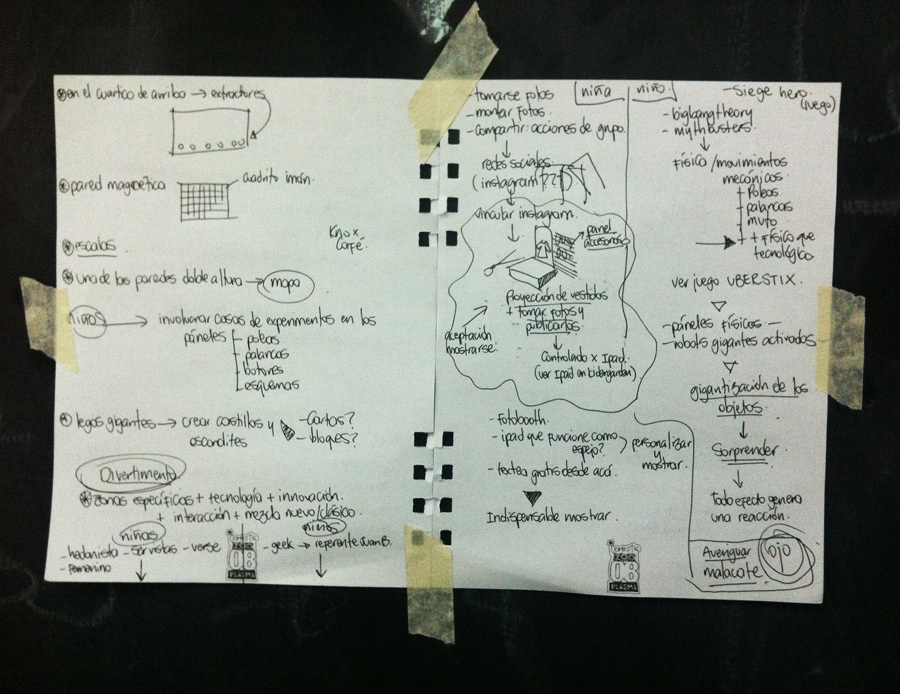 en el cuartico de arriba → extractores
pared magnética
cuadrito imán.
escalas
Kno x
Corfé.
una de las paredes doble altura → mapa
niños → involucrar cosas de experimentos en los
páneles
poleas
palancas
botones
esquemas
legos gigantes → crear castillos y
escondites
- Cartos?
- bloques?
Divertimento
zonas específicas + tecnología + innovación.
+ interacción + mezcla nuevo/clásico.
niñas
niños
- hedonista - servistas - verse
- femenino
- geek → referente Juan B.
ZOO
08
PLASMA
- tomarse fotos
- montar fotos.
- compartir: acciones de grupo.
niña
redes sociales.
(instagram???)
vincular instagram.
panel
accesorios
Proyección de vestidos
+ tomar fotos y
publicarlos
aceptación
mostrarse.
Controlado x Ipad.
(ver Ipad en kidergarden)
- fotobooth.
- ipad que funcione como
espejo?
- textea gratis desde acá.
personalizar
y
mostrar.
Indispensable mostrar.
ZOO
08
PLASMA
niño.
- Siege hero.
(juego)
- bigbang theory
- mythbusters.
Físico / movimientos
mecánicos
+ Poleas
- palancas
muro
+ + físico que
tecnológico
ver juego UBERSTIX.
- páneles físicos -
- robots gigantes activados -
gigantización de los
objetos.
Sorprender.
Todo efecto genera
una reacción.
Averiguar
malacate.
ojo